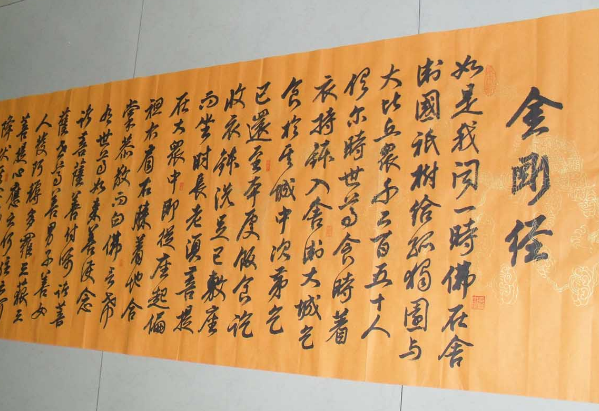 金剛经
如是我闻一時佛在舍
衛國祇樹给孤獨園与
大比丘眾千二百五十人
俱尔時世尊食時著
衣持鉢入舍衛大城乞
食於其城中次第乞
已還至本處飯食訖
收衣鉢洗足已敷座
而坐時長老須菩提
在大眾中即從座起偏
袒右肩右膝著地合
掌恭敬而白佛言希
有世尊如来善護念
諸菩薩善付嘱諸菩
薩世尊善男子善女
人發阿耨多羅三藐三
菩提心應云何住云何
降伏